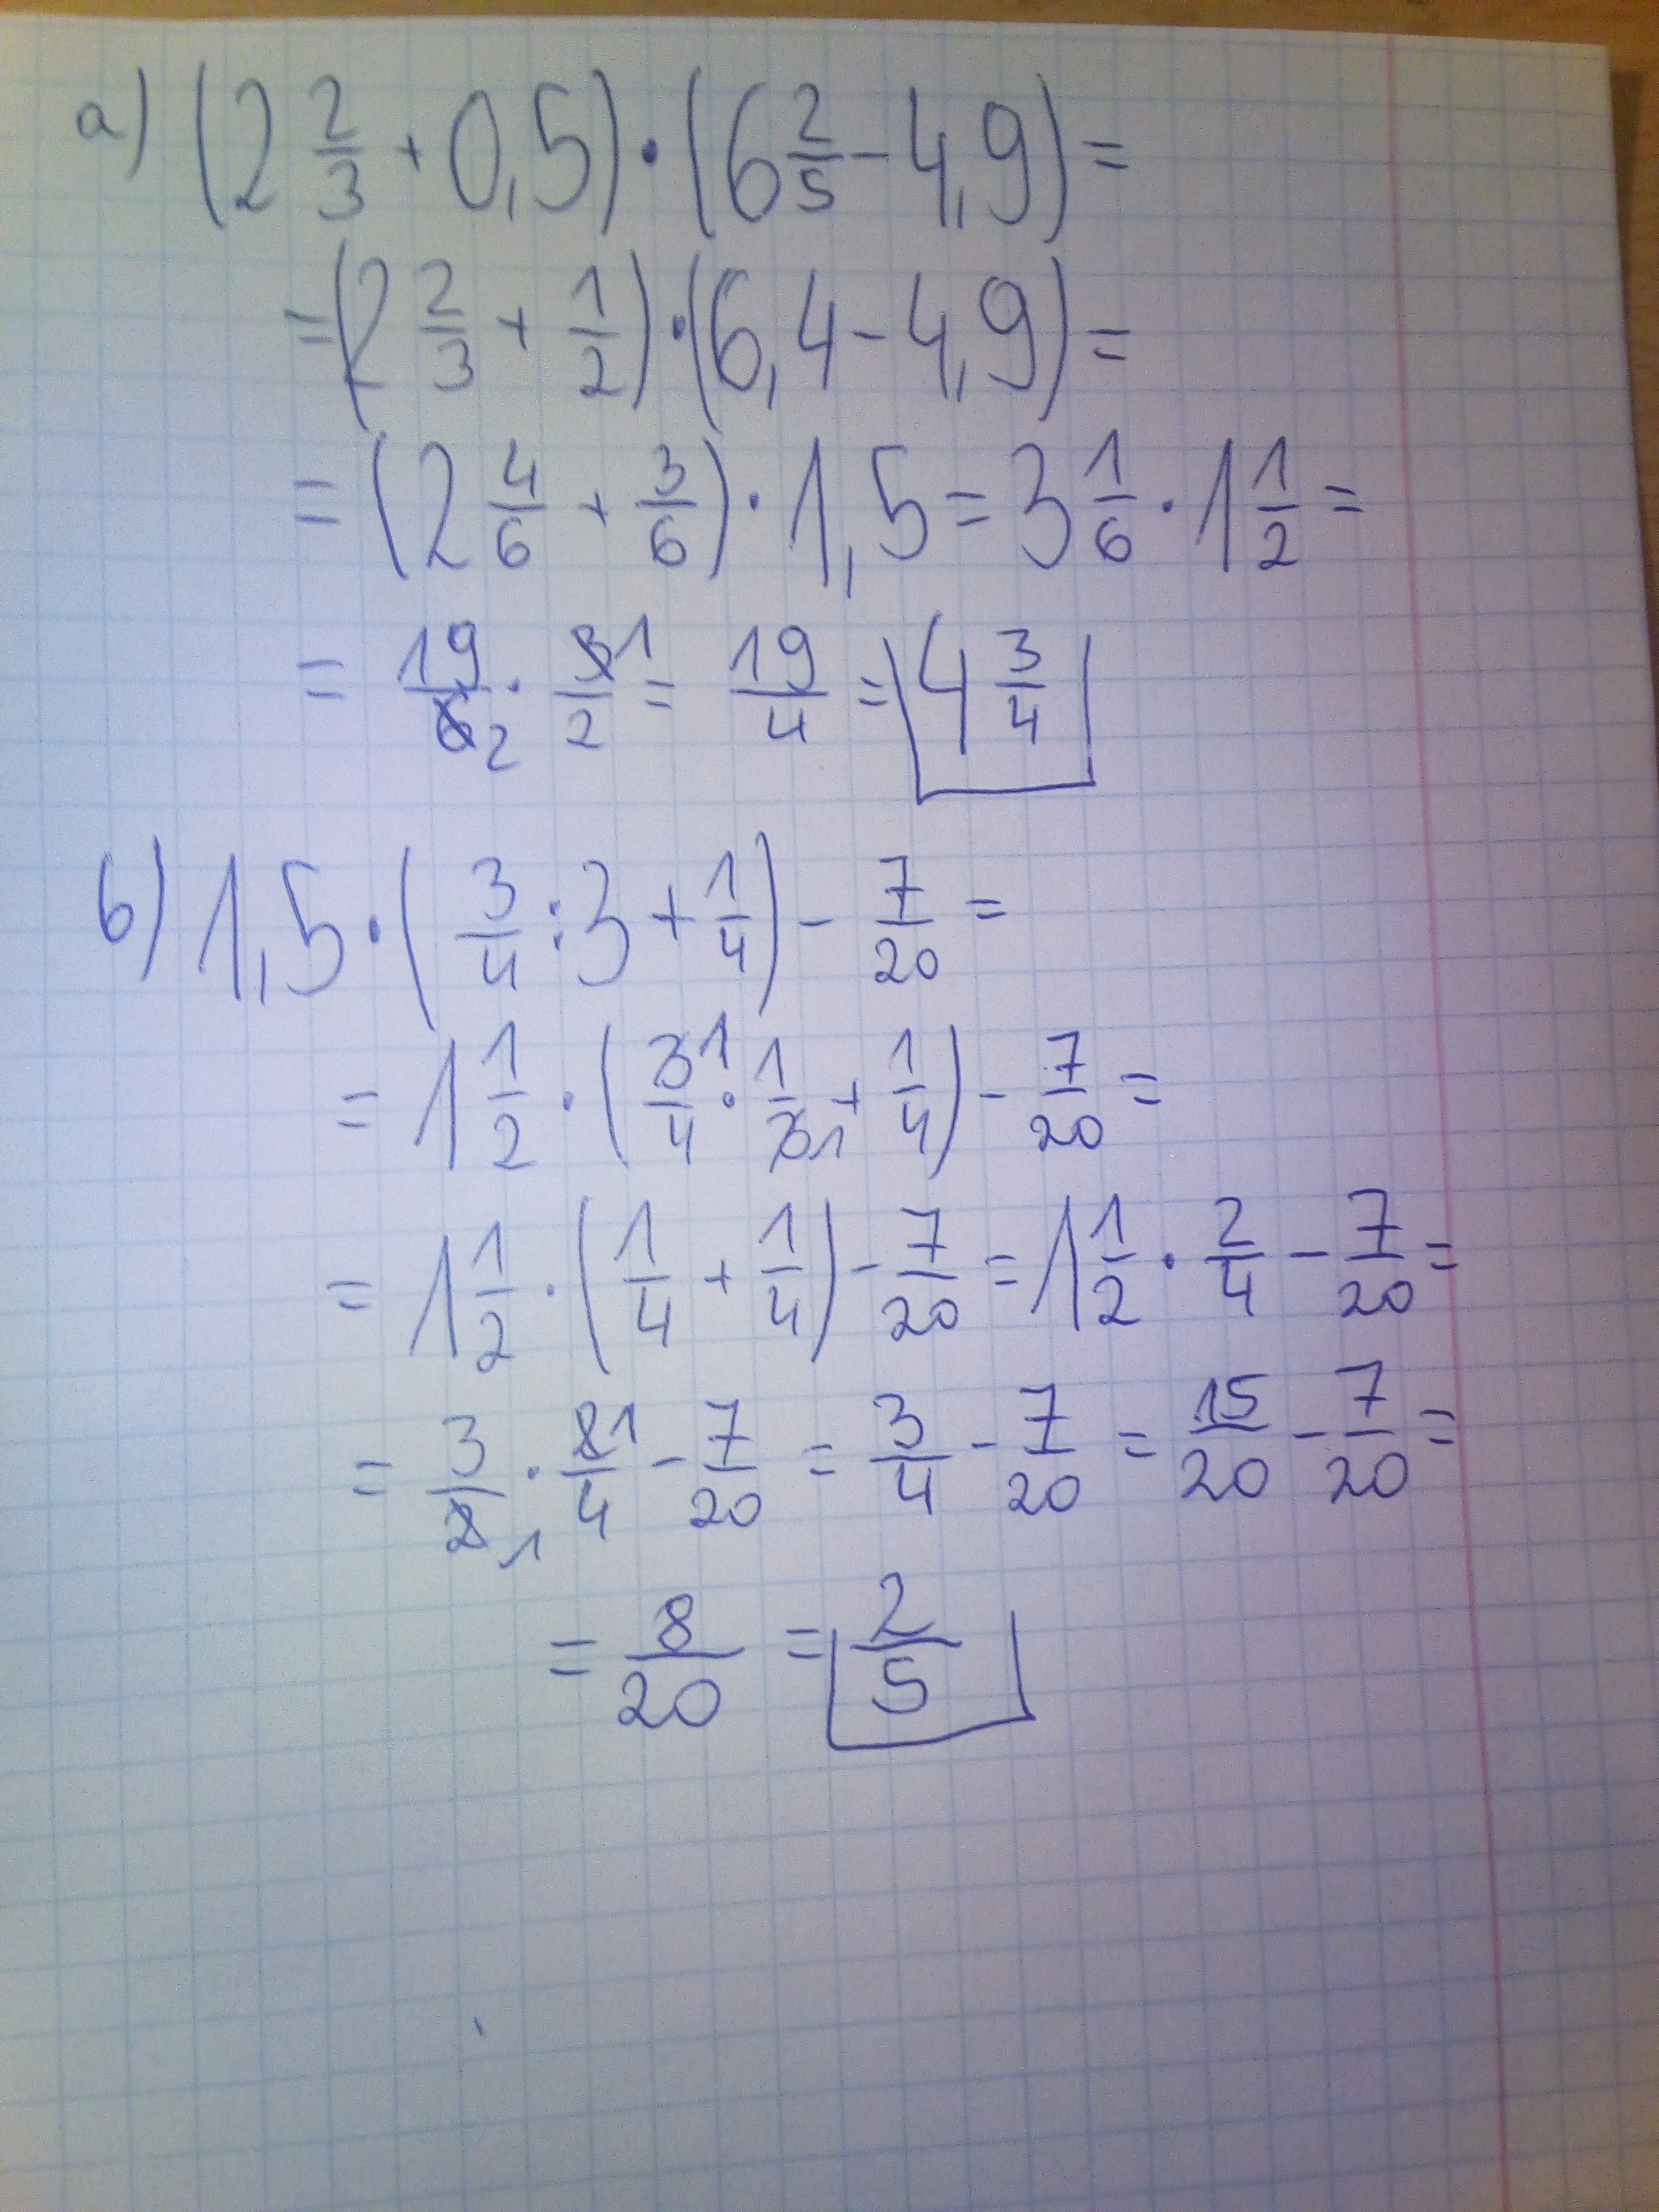 a) (2 2/3 + 0,5) · (6 2/5 - 4,9) =
= (2 2/3 + 1/2) · (6,4 - 4,9) =
= (2 4/6 + 3/6) · 1,5 = 3 1/6 · 1 1/2 =
= 19/6 2 · 3 1/2 = 19/4 = 4 3/4
b) 1,5 · (3/4 : 3 + 1/4) - 7/20 =
= 1 1/2 · (3 1/4 · 1/3 1 + 1/4) - 7/20 =
= 1 1/2 · (1/4 + 1/4) - 7/20 = 1 1/2 · 2/4 - 7/20 =
= 3/2 1 · 2 1/4 - 7/20 = 3/4 - 7/20 = 15/20 - 7/20 =
= 8/20 = 2/5